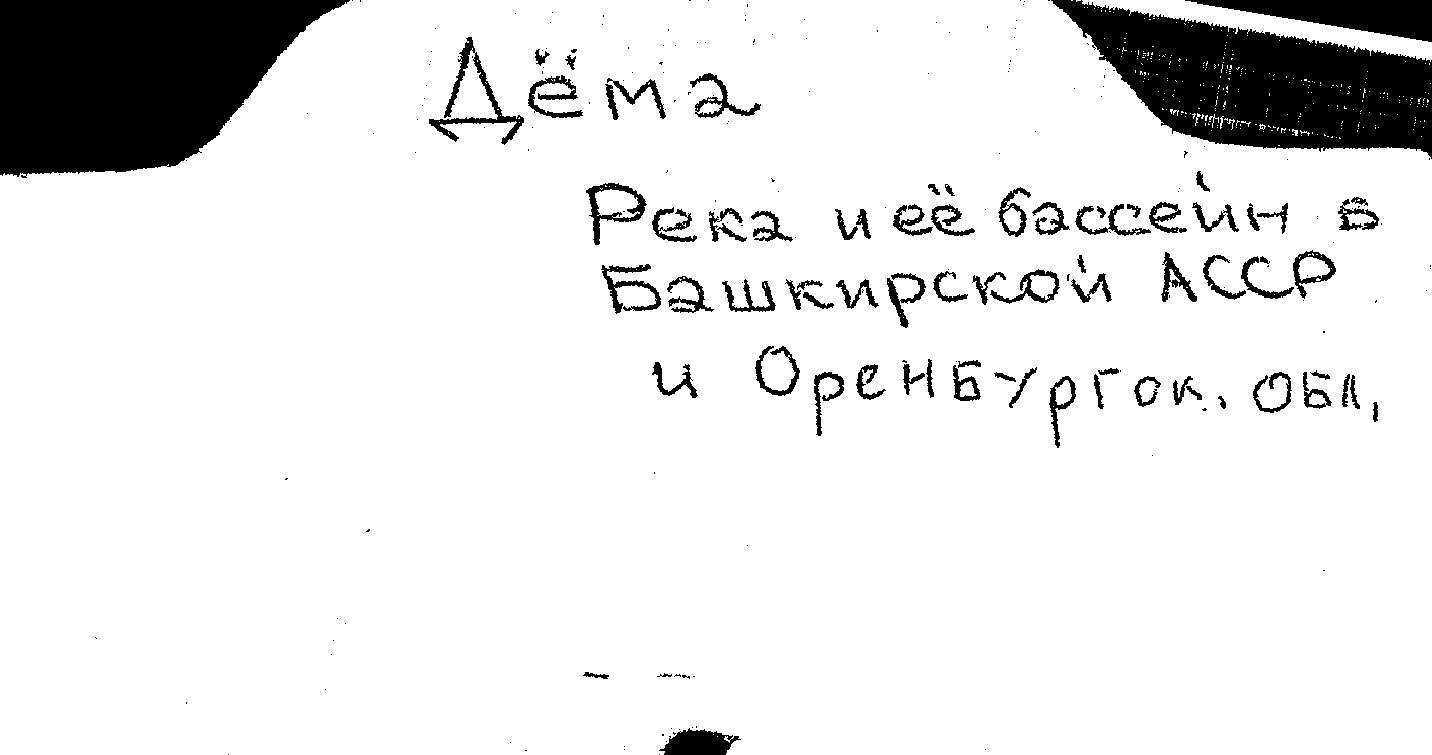 Дёма
Река и её бассейн в
Башкирской АССР
и Оренбургск. обл.